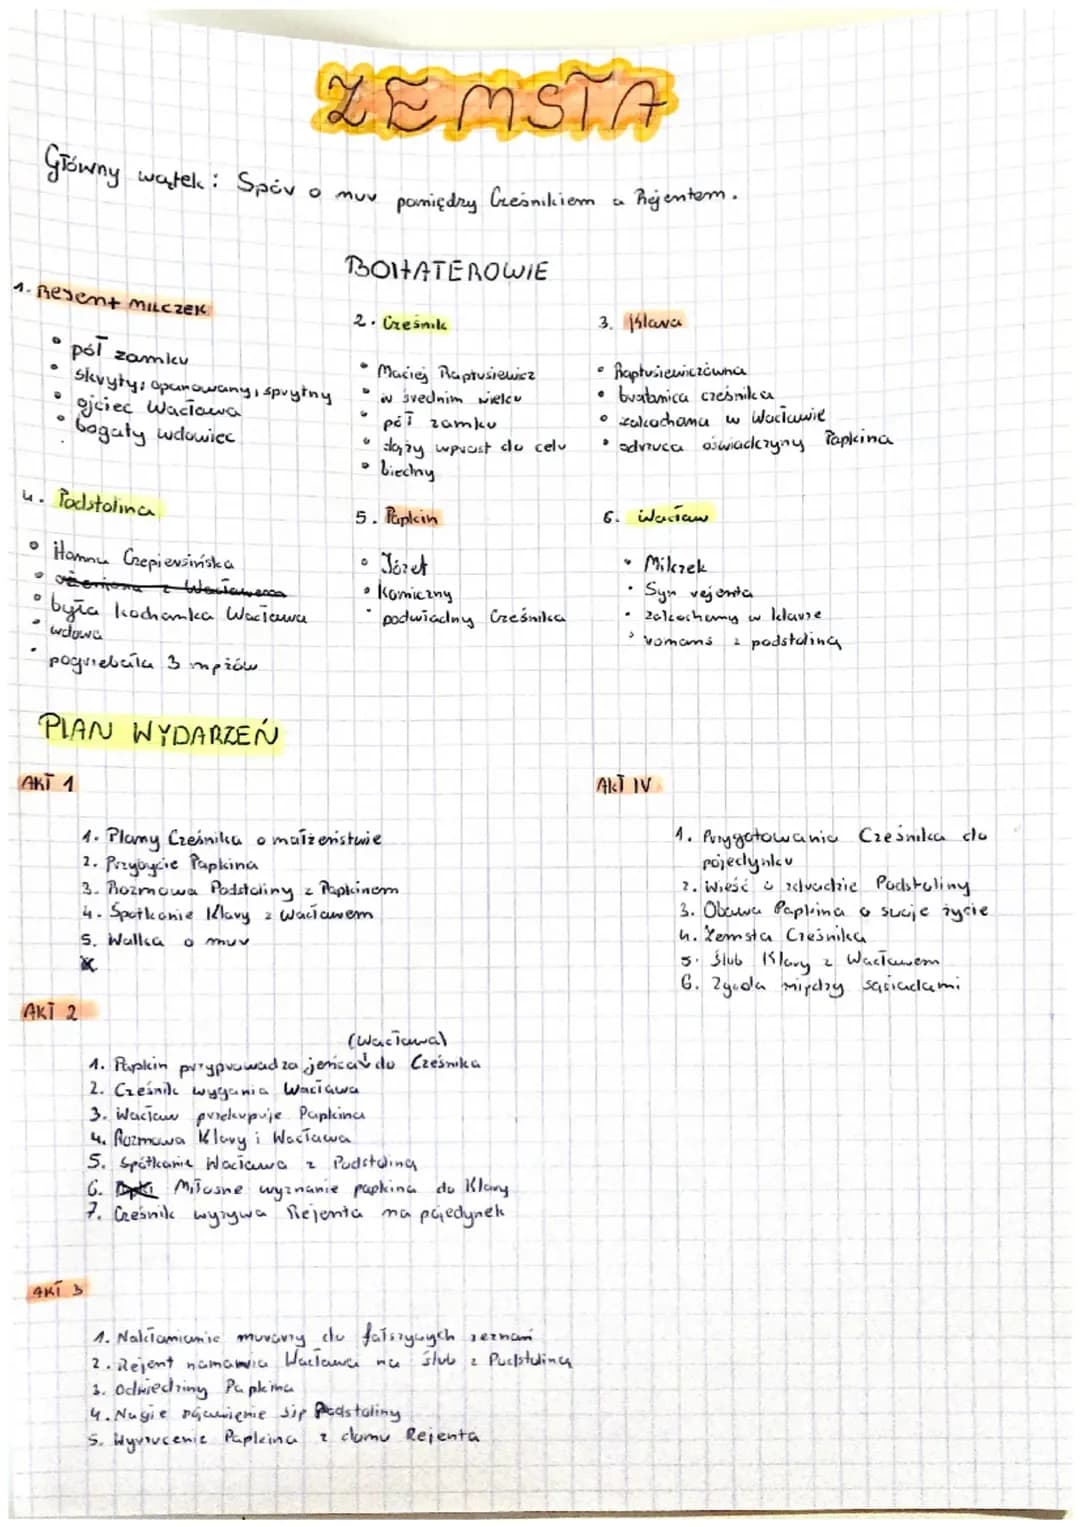 ZEMSTA
Główny wątek: Spór o mur pomiędzy Cześnikiem a Rejentem.
BOHATEROWIE
1. Rejent MILCZEK
• pół zamku
• skryty, opanowany, sprytny
• ojciec Wacława
• bogaty wdowiec
2. Cześnik
• Maciej Raptusiewicz
• w średnim wieku
• pół zamku
• dąży wprost do celu
• biedny
3. Klara
• Raptusiewiczówna
• bratanica cześnika
• zakochana w Wacławie
• odrzuca oświadczyny Papkina
4. Podstolina
• Hanna Czepiersińska
• ożeniona z Wacławem
• była kochanka Wacława
• wdowa
• pogrzebała 3 mężów
5. Papkin
• Józef
• komiczny
• podwładny Cześnika
6. Wacław
• Milczek
• Syn rejenta
• zakochany w klarze
• romans z podstoliną
PLAN WYDARZEŃ
AKT 1
1. Plany Cześnika o małżeństwie
2. Przybycie Papkina
3. Rozmowa Podstoliny z Papkinem
4. Spotkanie Klary z Wacławem
5. Walka o mur
AKT 2
(Wacława)
1. Papkin przyprowadza jeńca do Cześnika
2. Cześnik wygania Wacława
3. Wacław przekupuje Papkina
4. Rozmowa Klary i Wacława
5. Spotkanie Wacława z Podstoliną
6. Miłosne wyznanie papkina do Klary
7. Cześnik wyzywa Rejenta na pojedynek
AKT 3
1. Nakłamianie murarzy do fałszywych zeznań
2. Rejent namawia Wacława na ślub z Podstoliną
3. Odwiedziny Papkina
4. Nagłe pojawienie się Podstoliny
5. Wyrzucenie Papkina z domu Rejenta
AKT IV
1. Przygotowania Cześnika do
pojedynku
2. Wieść o zdradzie Podstoliny
3. Obawa Papkina o swoje życie
4. Zemsta Cześnika
5. Ślub Klary z Wacławem
6. Zgoda między sąsiadami